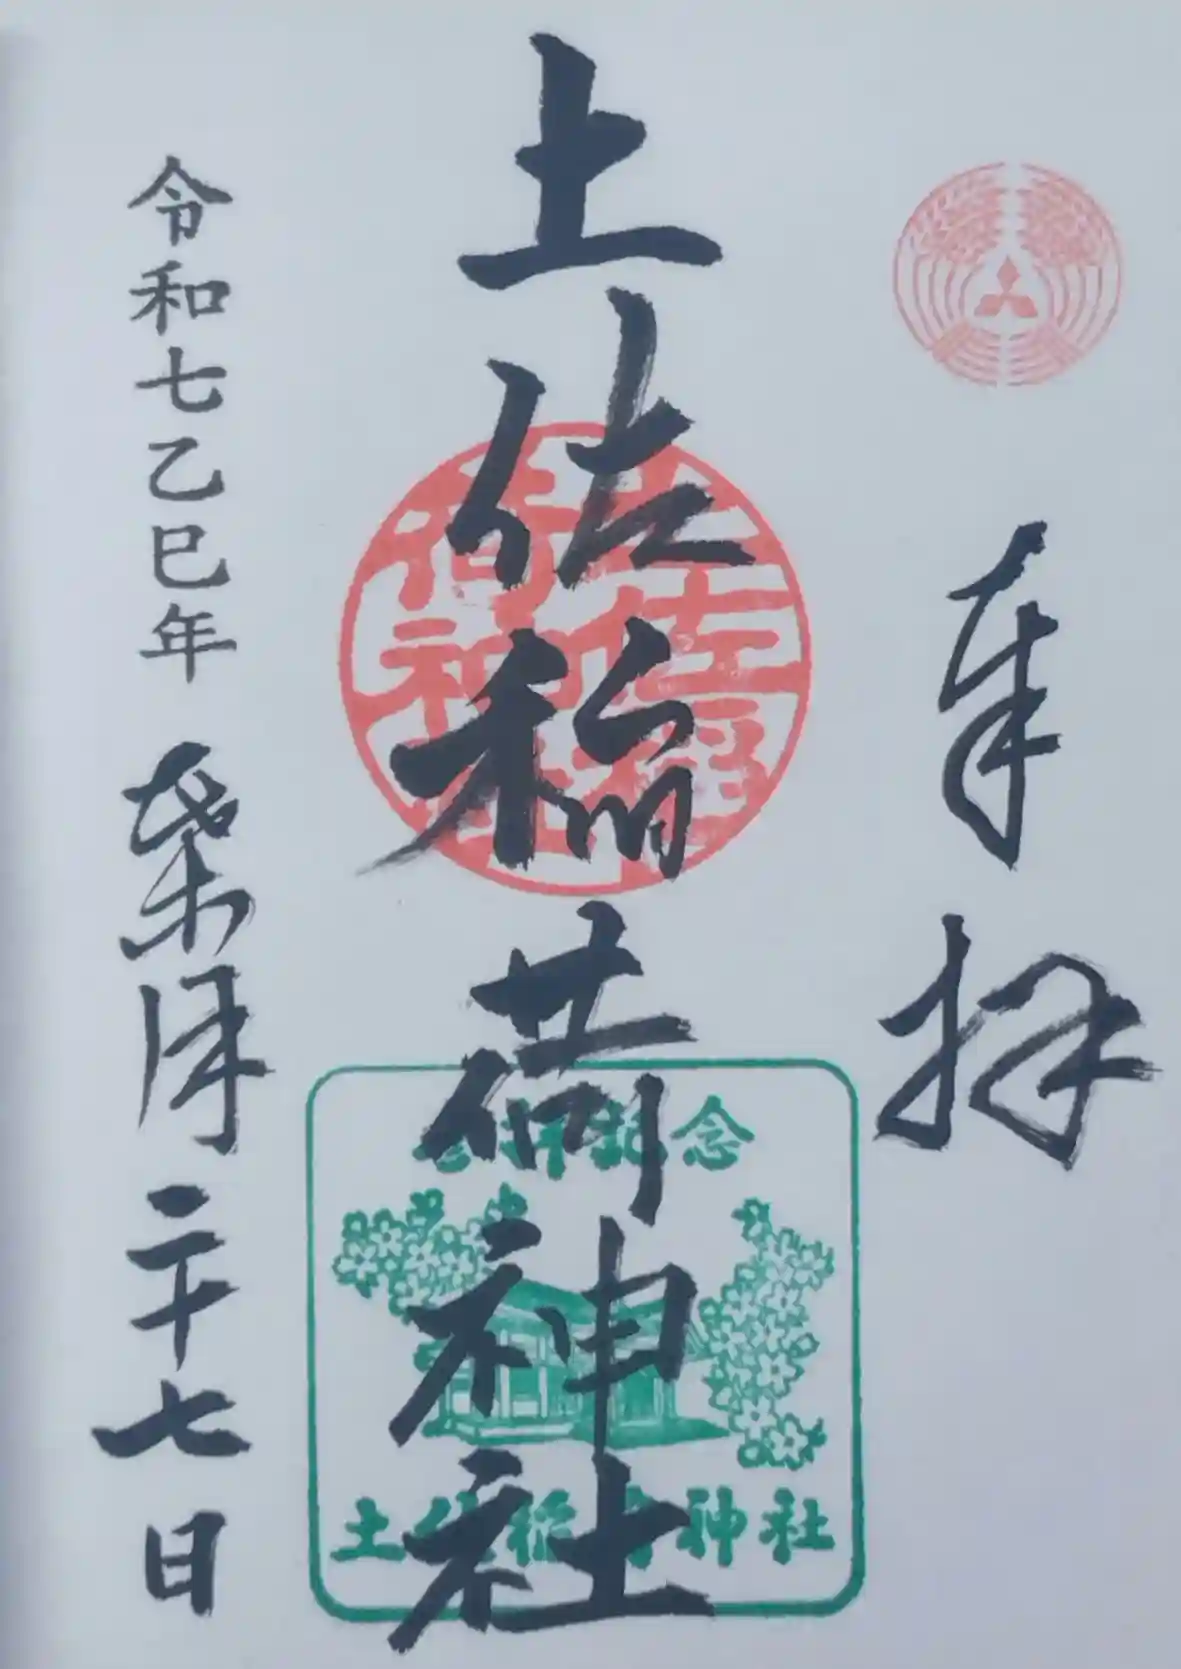 奉拝
土佐稲荷神社
令和七乙巳年 葉月二十七日
土佐稲
荷神社
参拝記念
土佐稲荷神社